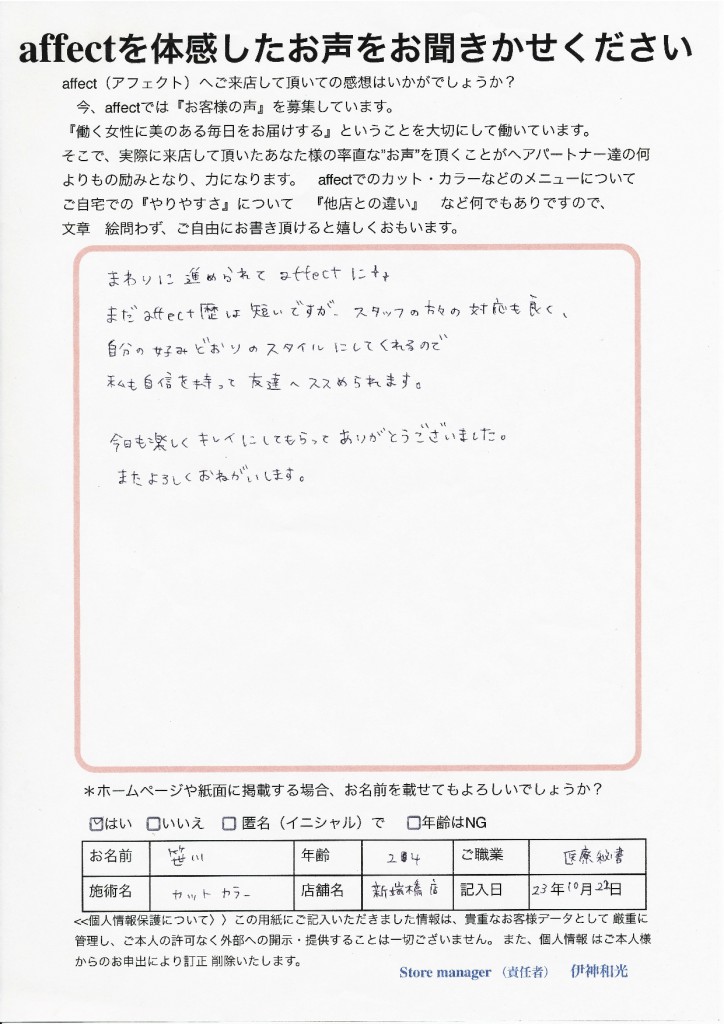 affectを体感したお声をお聞きかせください
affect（アフェクト）へご来店して頂いての感想はいかがでしょうか？
今、affectでは『お客様の声』を募集しています。
『働く女性に美のある毎日をお届けする』ということを大切にして働いています。
そこで、実際に来店して頂いたあなた様の率直な"お声"を頂くことがヘアパートナー達の何
よりもの励みとなり、力になります。 affectでのカット・カラーなどのメニューについて
ご自宅での『やりやすさ』について 『他店との違い』 など何でもありですので、
文章 絵問わず、ご自由にお書き頂けると嬉しくおもいます。
まわりに進められてaffectに
まだaffect歴は短いですが、スタッフの方々の対応も良く、
自分の好みどおりのスタイルにしてくれるので
私も自信を持って友達へススめられます。
今日も楽しくキレイにしてもらってありがとうございました。
またよろしくおねがいします。
＊ホームページや紙面に掲載する場合、お名前を載せてもよろしいでしょうか？
はい いいえ 匿名（イニシャル）で 年齢はNG
お名前 笹川 年齢 24 ご職業 医療秘書
施術名 カットカラー 店舗名 新瑞橋店 記入日 23年10月22日
<<個人情報保護について〉〉この用紙にご記入いただきました情報は、貴重なお客様データとして 厳重に
管理し、ご本人の許可なく外部への開示・提供することは一切ございません。また、個人情報 はご本人様
からのお申出により訂正 削除いたします。
Store manager （責任者） 伊神和光